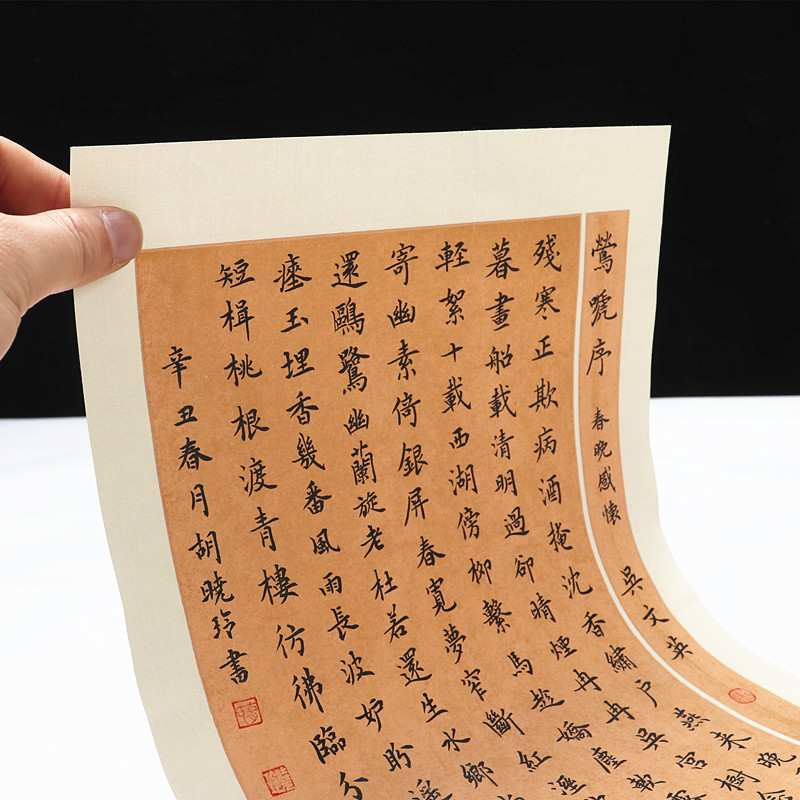 鶯嗁序 春晚感懷 吳文英
残寒正欺病酒掩沈香繡戶燕来晚
暮畫船載清明過卻晴煙冉冉吳宮樹念
軽絮十載西湖傍柳繫馬趂嬌塵軟
寄幽素倚銀屏春寬夢窄斷紅溼
還鷗鷺幽蘭旋老杜若還生水鄉尚
瘞玉埋香幾番風雨長波妒盼遥
短楫桃根渡青樓彷彿臨分
辛丑春月胡曉玲書